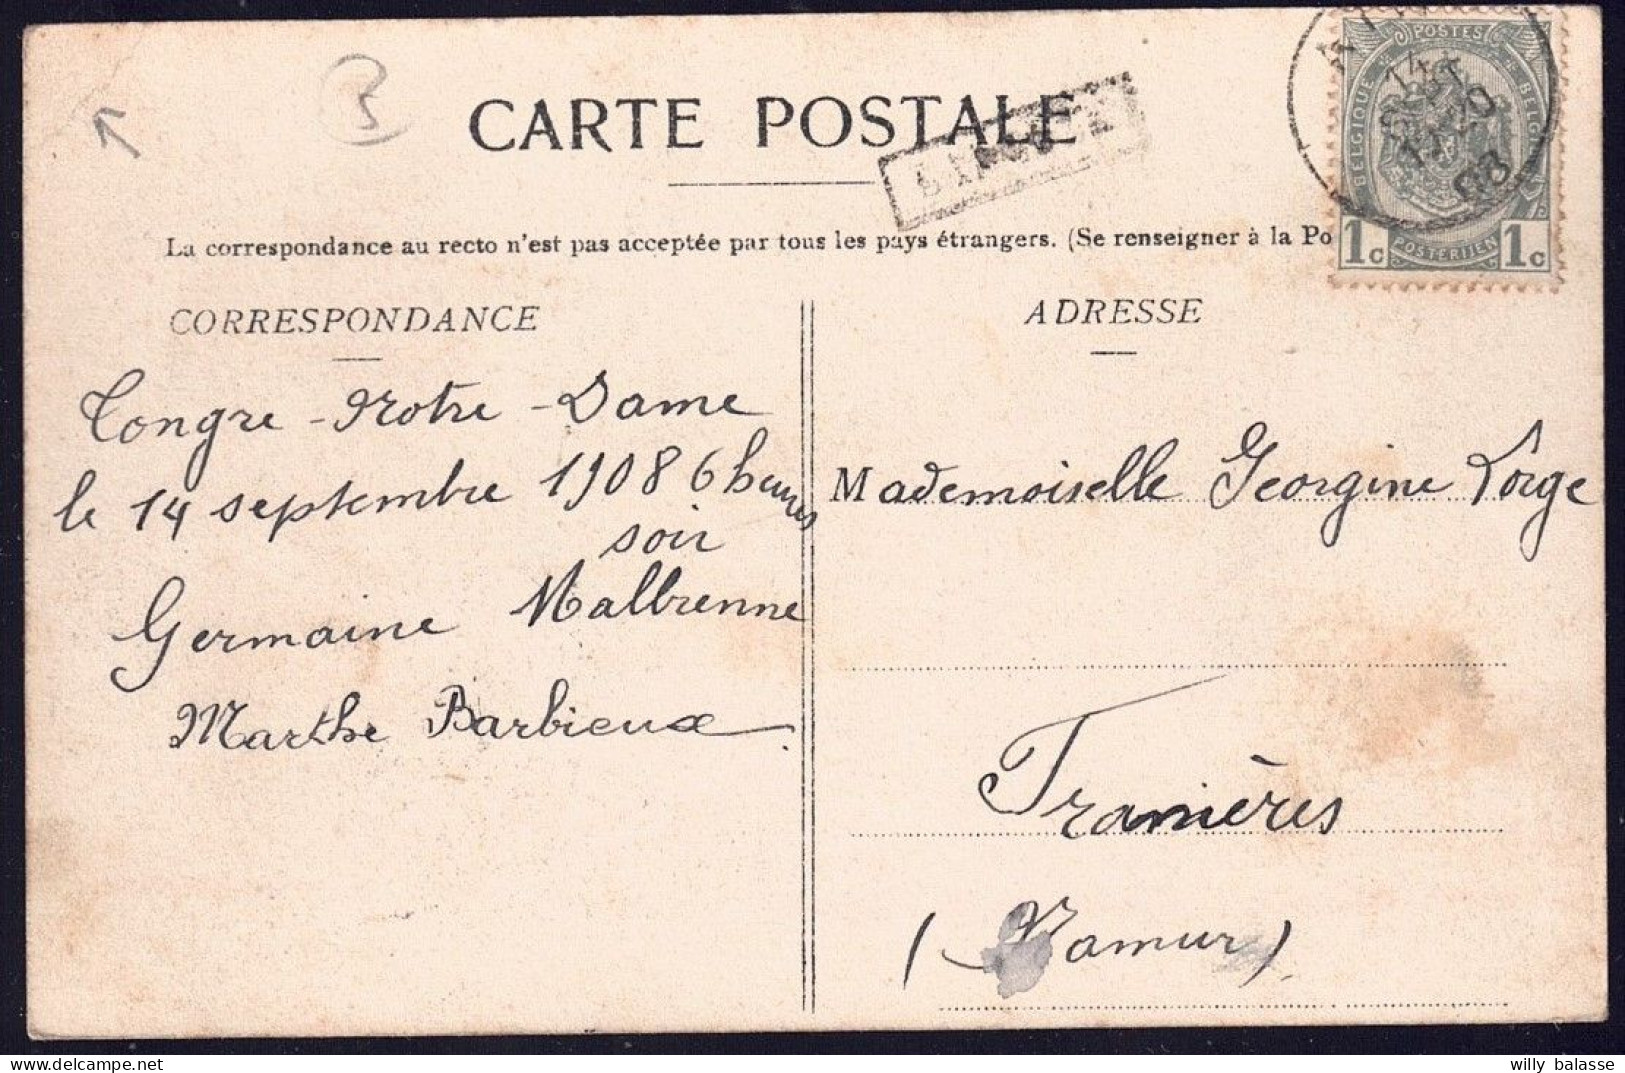 CARTE POSTALE
La correspondance au recto n'est pas acceptée par tous les pays étrangers. (Se renseigner à la Po
POSTES
BELGIQUE
BELGIË
POSTERIJEN
1c 1c
14
SEPT
08
CORRESPONDANCE
Tongre-Notre-Dame
le 14 septembre 1908 6 heures
soir
Germaine Malbrenne
Marthe Barbieux
ADRESSE
Mademoiselle Georgine Lorge
Franières
(Namur)
3
willy balasse